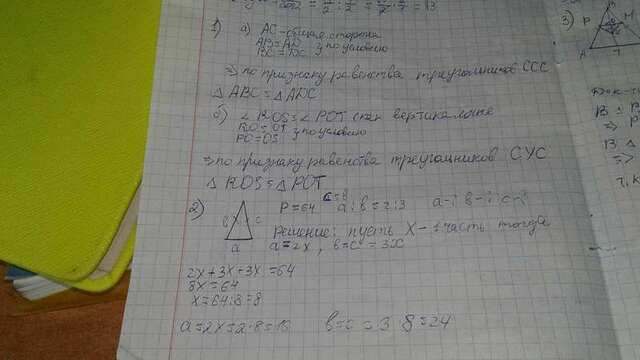 1) а) AC - общая сторона
AB = AD
BC = DC } по условию
=> по признаку равенства треугольников CCC
△ ABC = △ ADC
б) ∠ ROS = ∠ POT как вертикальные
RO = OT } по условию
PO = OS
=> по признаку равенства треугольников СУС
△ ROS = △ POT
2) P = 64 a : b = 2 : 3 a - ? b - ? c - ?
c = b
b c
a
Решение: пусть X - 1 часть тогда
a = 2x, b = c = 3x
2x + 3x + 3x = 64
8x = 64
x = 64 : 8 = 8
a = 2x = 2 · 8 = 16 b = c = 3 · 8 = 24
3)
P
M
A